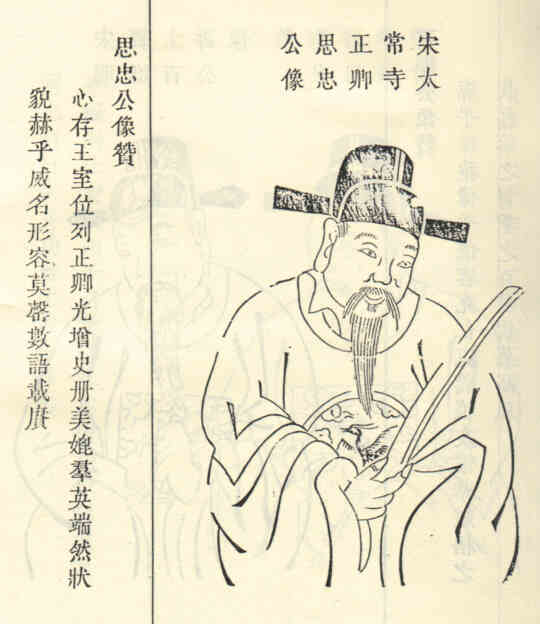 宋太
常寺
正卿
思忠
公像
思忠公像贊
心存王室位列正卿光增史册美媲羣英端然狀
貌赫乎威名形容莫罄數語載賡